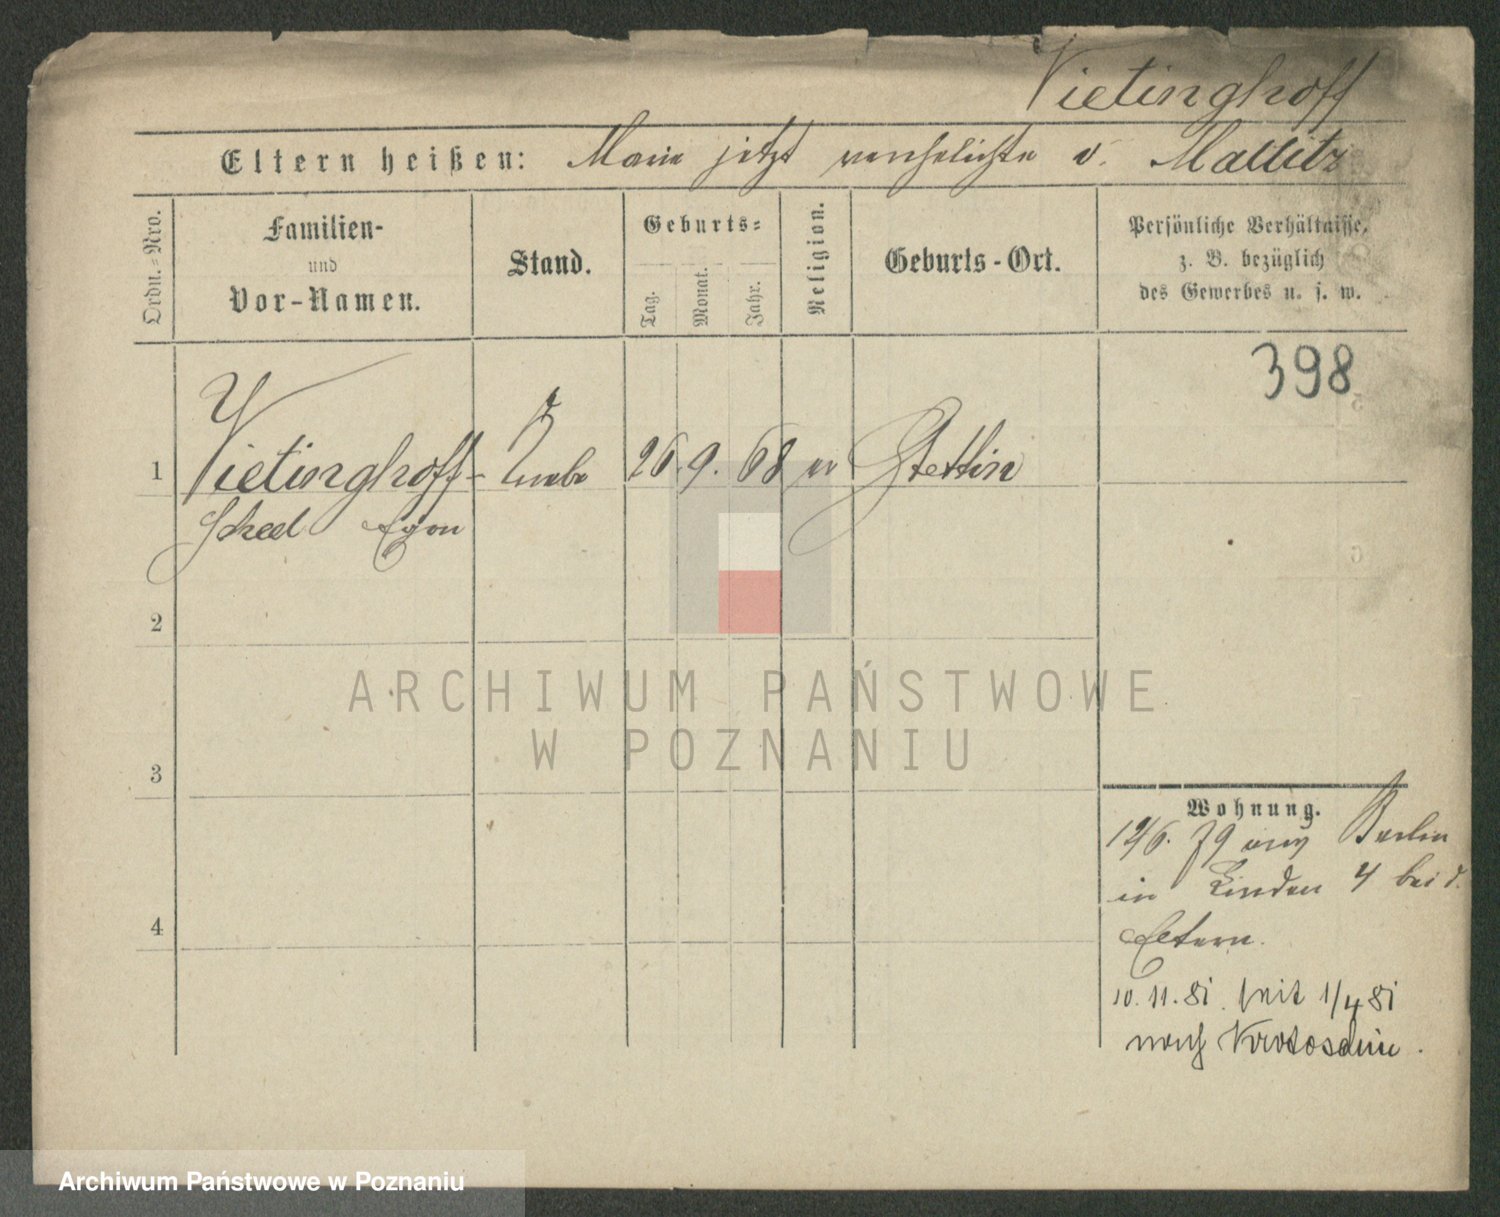 Vietinghoff
Eltern heißen: Marie jetzt verehelichte v. Mallitz
Ordn.-Nro.
Familien-
und
Vor-Namen.
Stand.
Geburts-
Tag.
Monat.
Jahr.
Religion.
Geburts-Ort.
Persönliche Verhältnisse,
z. B. bezüglich
des Gewerbes u. s. w.
398
1 Vietinghoff- Knabe 26. 9. 68 ev Stettin
Scheel Egon
2
3
4
Wohnung.
12/6. 79 aus Berlin
in Linden 4 bei d.
Eltern.
10. 11. 81. seit 1/4 81
nach Krotoschin.
ARCHIWUM PAŃSTWOWE
W POZNANIU
Archiwum Państwowe w Poznaniu